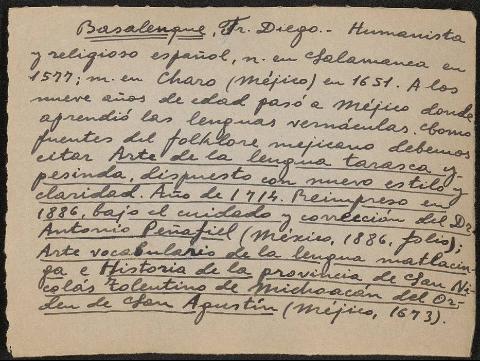 Basalenque, Fr. Diego.- Humanista
y religioso español, n. en Salamanca en
1577; m. en Charo (Méjico) en 1651. A los
nueve años de edad pasó a Méjico donde
aprendió las lenguas vernáculas. Como
fuentes del folklore mejicano debemos
citar Arte de la lengua tarasca y-
pesinda, dispuesto con nuevo estilo y
claridad. Año de 1714. Reimpreso en
1886, bajo el cuidado y corrección del Dr.
Antonio Peñafiel (México, 1886, folio);
Arte vocabulario de la lengua matlacin-
ga e Historia de la provincia de San Ni-
colás Tolentino de Michoacán del Or-
den de San Agustín (Méjico, 1673).